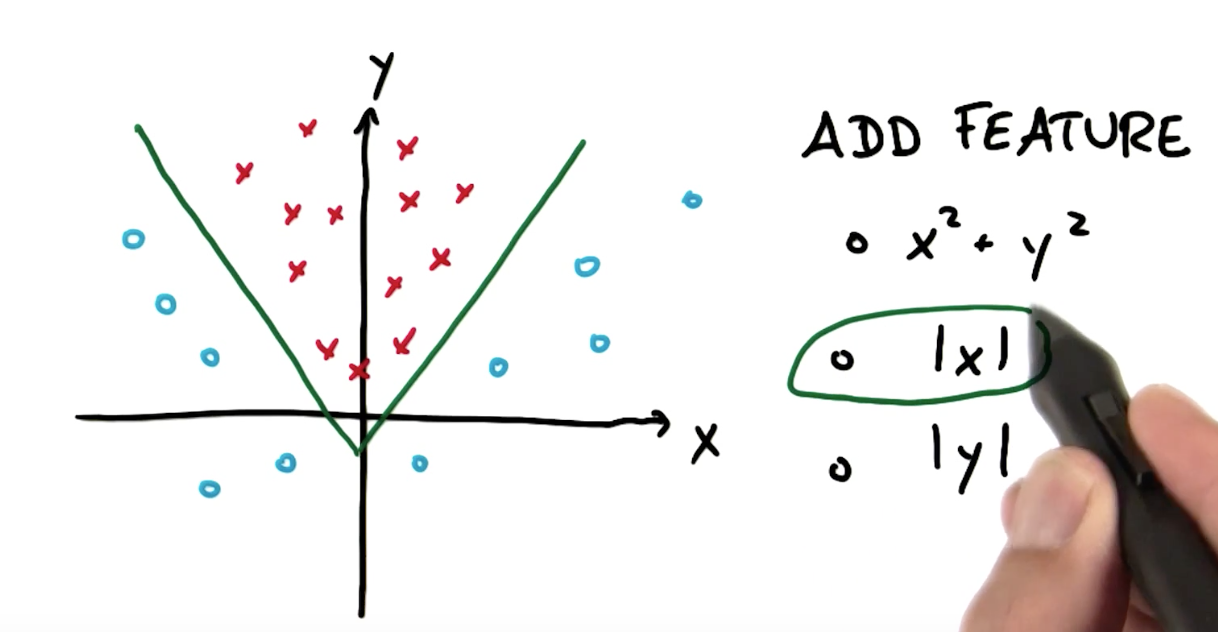 Y
X
ADD FEATURE
o x² + y²
o |x|
o |y|